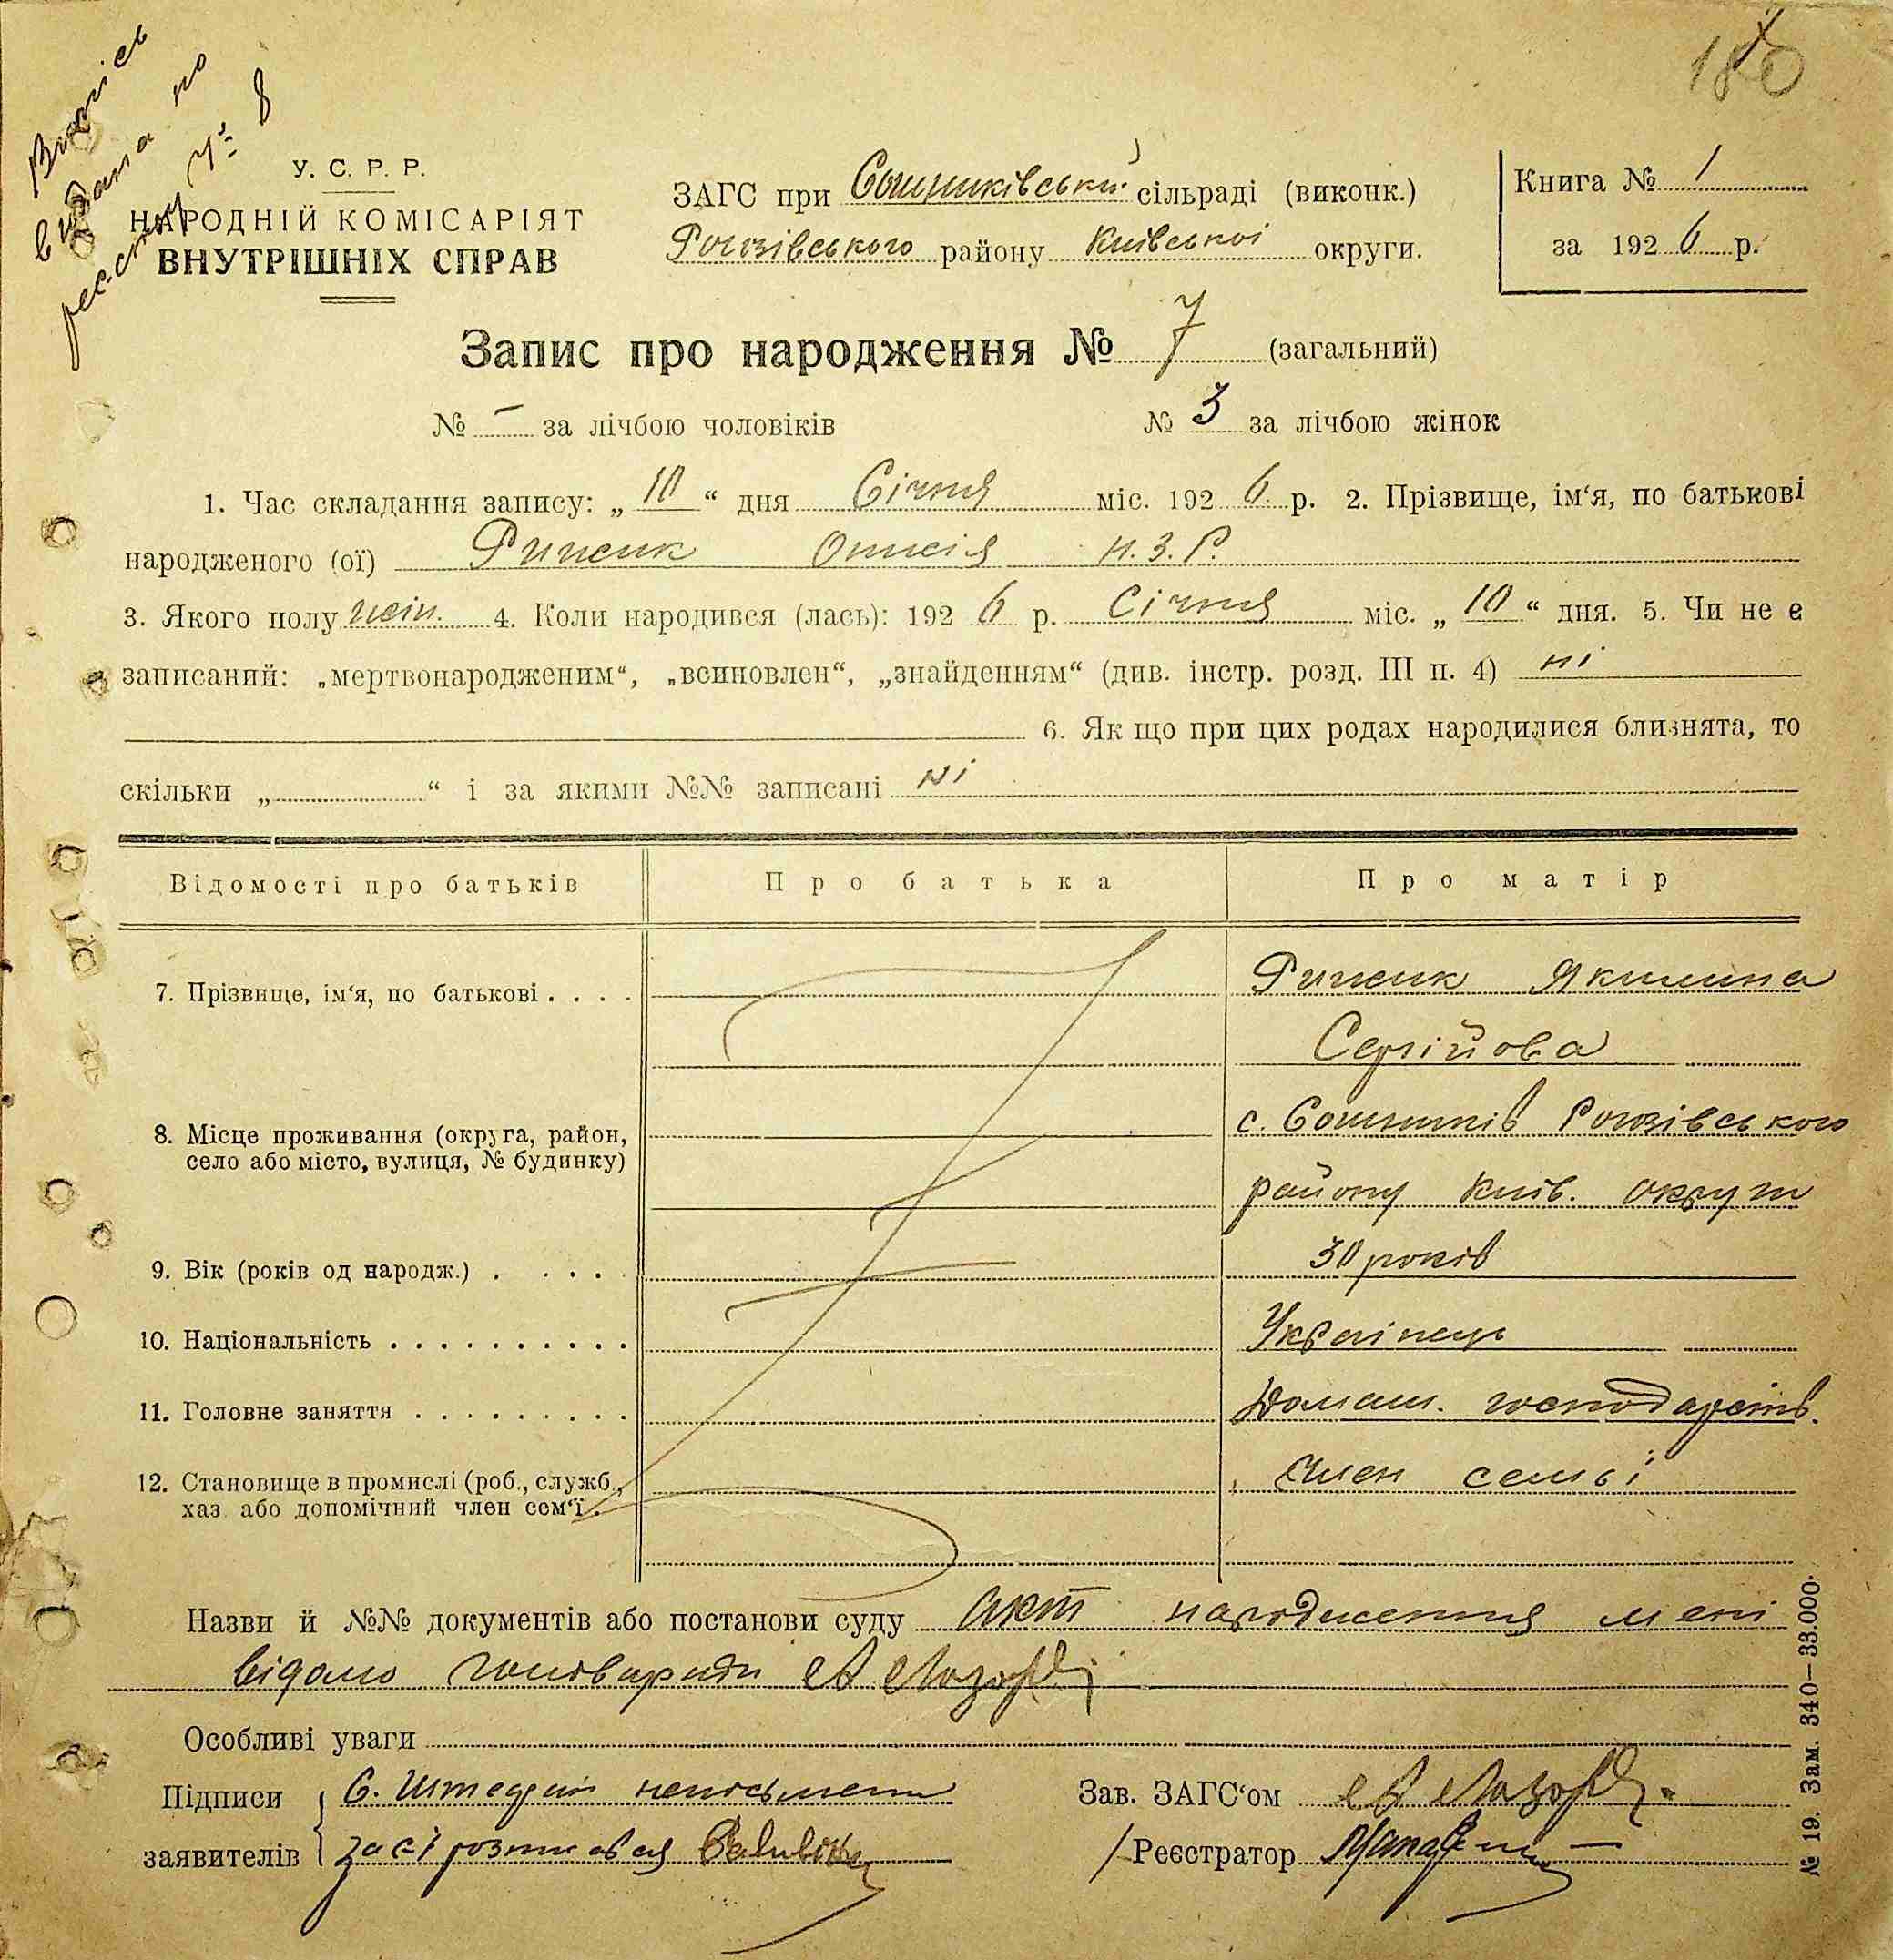 180
Випись
видана по
реєстру № 8
У. С. Р. Р.
НАРОДНІЙ КОМІСАРІЯТ
ВНУТРІШНІХ СПРАВ
ЗАГС при Сошниківській сільраді (виконк.)
Рогозівського району Київської округи.
Книга № 1
за 1926 р.
Запис про народження № 7 (загальний)
№ — за лічбою чоловіків № 3 за лічбою жінок
1. Час складання запису: „10“ дня Січня міс. 1926 р. 2. Прізвище, ім‘я, по батькові
народженого (ої) Рипенк Онисія н.з.р.
3. Якого полу жін. 4. Коли народився (лась): 1926 р. Січня міс. „10“ дня. 5. Чи не є
записаний: „мертвонародженим“, „всиновлен“, „знайденням“ (див. інстр. розд. III п. 4) ні
6. Як що при цих родах народилися близнята, то
скільки „ “ і за якими №№ записані ні
Відомості про батьків Про батька Про матір
7. Прізвище, ім‘я, по батькові . . . . Рипенк Якилина
Сергійова
8. Місце проживання (округа, район, с. Сошників Рогозівського
село або місто, вулиця, № будинку) району Київ. округи
9. Вік (років од народж.) . . . . . 30 років
10. Національність . . . . . . . . . . Українець
11. Головне заняття . . . . . . . . . Домаш. господарств.
12. Становище в промислі (роб., служб., член семьї
хаз. або допомічний член сем‘ї .
Назви й №№ документів або постанови суду акт народження мені
відомо
Особливі уваги
Підписи С. неписьмени
заявителів за сі розписався
Зав. ЗАГС‘ом
Реєстратор
№ 19. Зам. 340—33.000.